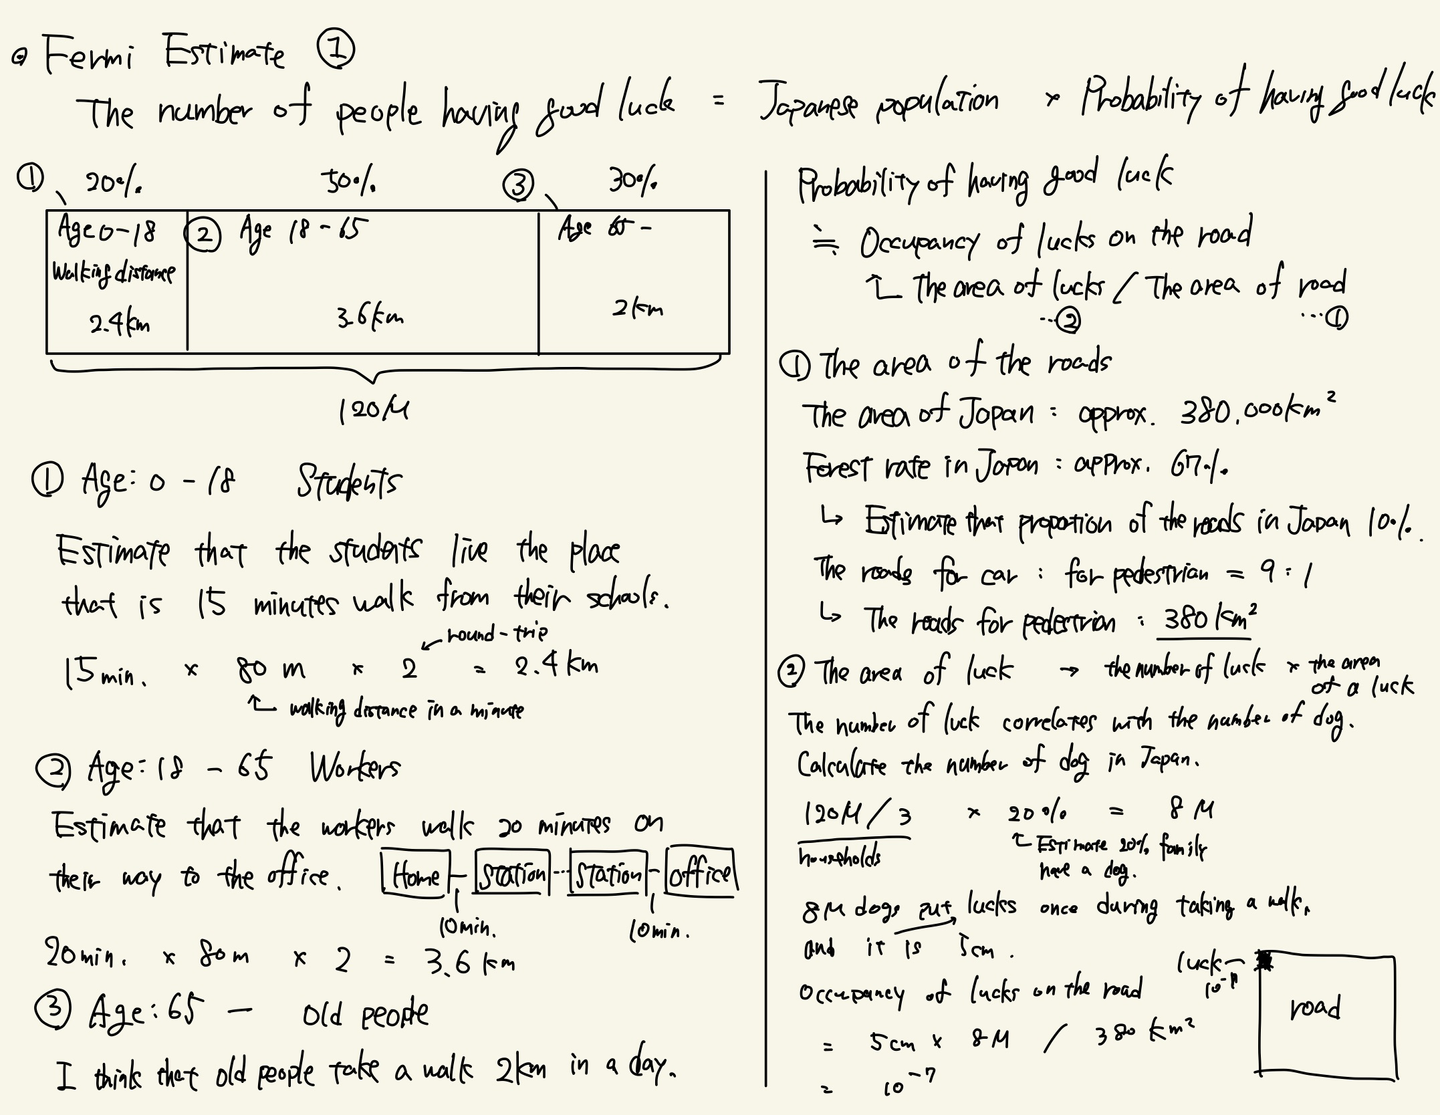 Fermi Estimate ①
The number of people having good luck = Japanese population × Probability of having good luck
① 20% 50% ③ 30%
Age 0-18 ② Age 18-65 Age 65 -
Walking distance
2.4km 3.6km 2km
120M
① Age: 0 - 18 Students
Estimate that the students live the place
that is 15 minutes walk from their schools.
round-trip
15 min. × 80 m × 2 = 2.4 km
walking distance in a minute
② Age: 18 - 65 Workers
Estimate that the workers walk 20 minutes on
their way to the office. Home Station Station office
10min. 10min.
20min. × 80m × 2 = 3.6 km
③ Age: 65 — old people
I think that old people take a walk 2km in a day.
Probability of having good luck
≒ Occupancy of lucks on the road
The area of lucks / The area of road
…② …①
① The area of the roads
The area of Japan : approx. 380.000km²
Forest rate in Japan : approx. 67%.
↳ Estimate that propotion of the roads in Japan 10%.
The roads for car : for pedestrian = 9 : 1
↳ The roads for pedestrian : 380 km²
② The area of luck → the number of luck × the area
of a luck
The number of luck correlates with the number of dog.
Calculate the number of dog in Japan.
120M / 3 × 20% = 8 M
households Estimate 20% family
have a dog.
8M dogs put lucks once during taking a walk,
and it is 5cm.
Occupancy of lucks on the road
= 5cm × 8M / 380 km²
= 10⁻⁷
luck
road